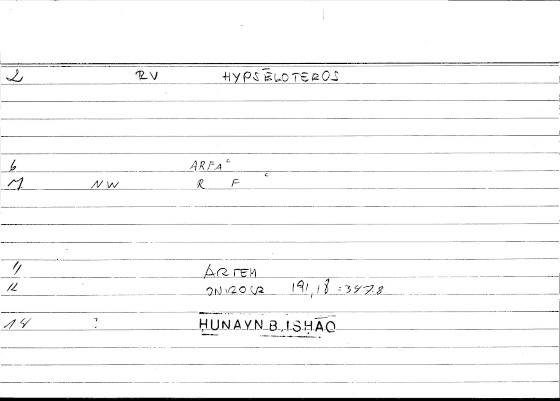 2 RV HYPSĒLOTEROS
6 ARFAʿ
7 NW R F ʿ
11 ARTEM
12 ONIROCR 191,18 = 347.8
14 : ḤUNAYN B. ISḤĀQ